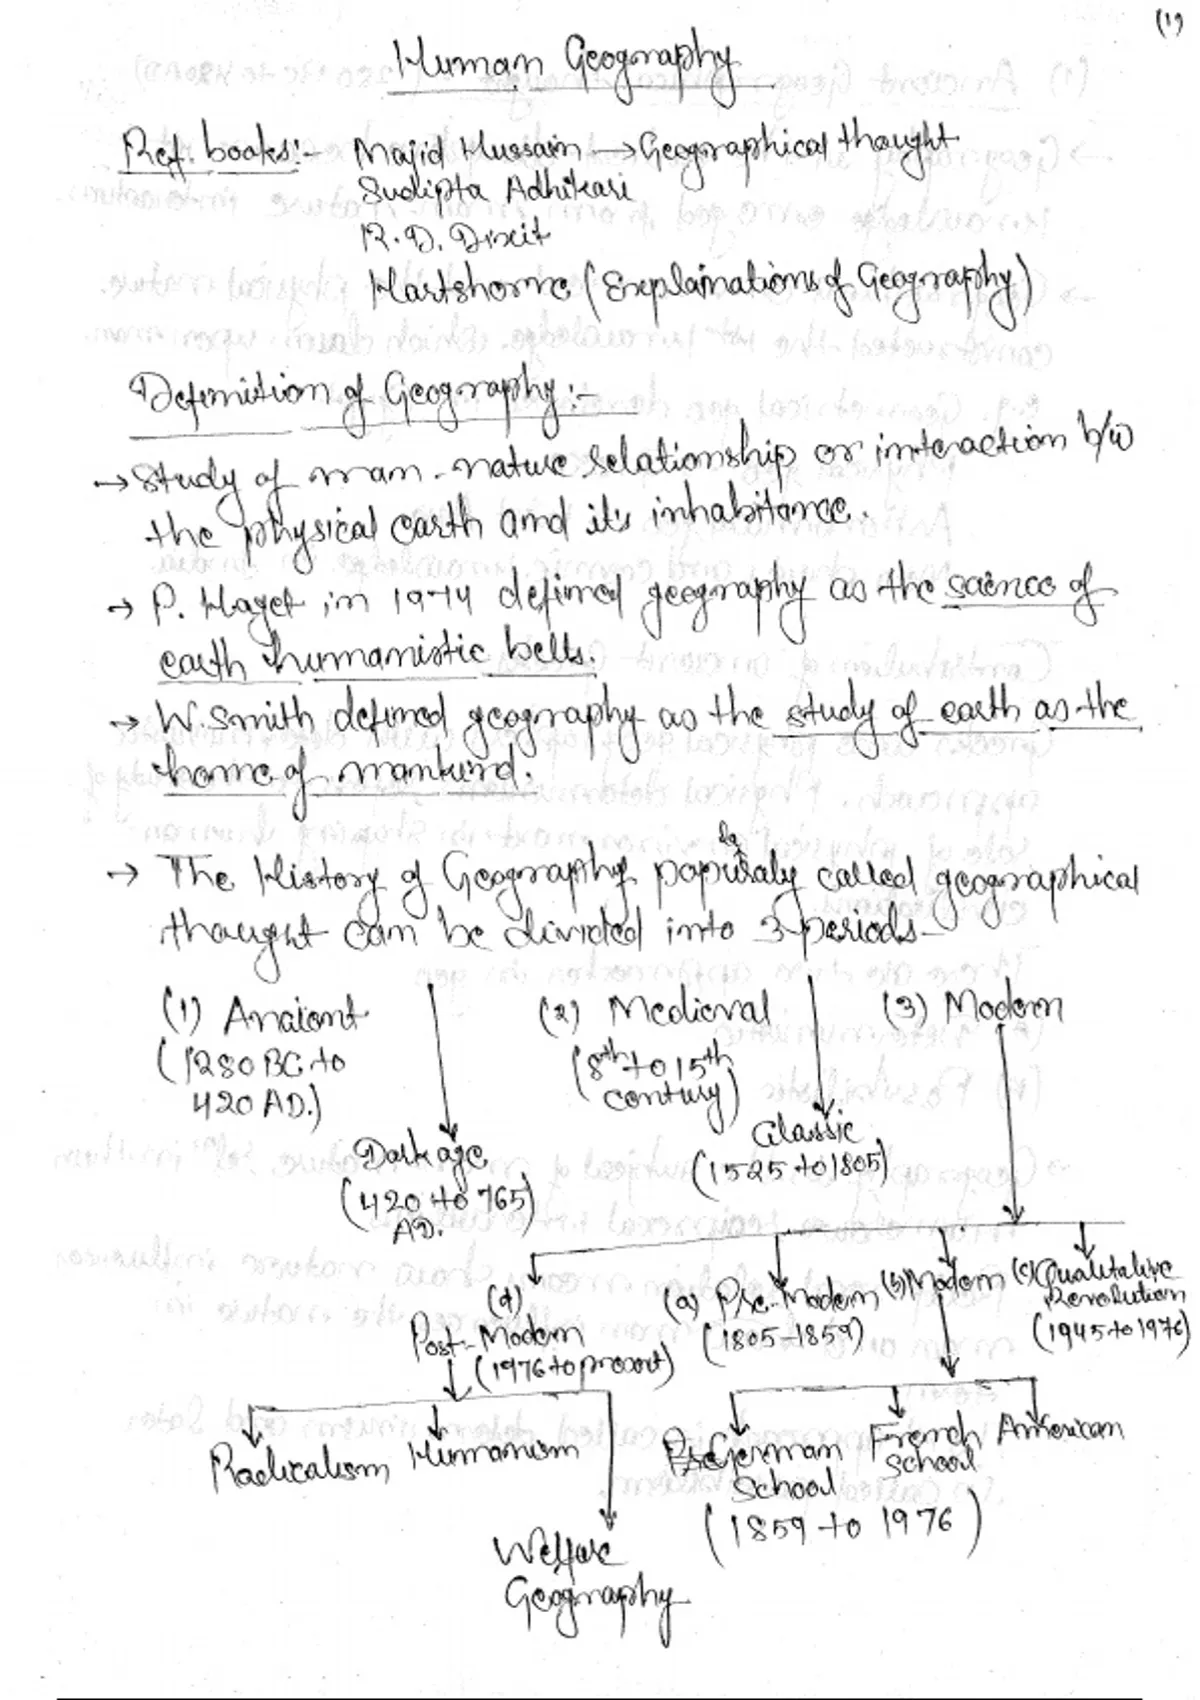 (1)
Human Geography
Ref. books:- Majid Hussain → Geographical thought
Sudipta Adhikari
R.D. Dixit
Hartshorne (Explainations of Geography)
Definition of Geography:-
→ Study of man-nature relationship or interaction b/w
the physical earth and its inhabitance.
→ P. Haget in 1974 defined geography as the science of
earth humanistic belts.
→ W. Smith defined geography as the study of earth as the
home of mankind.
→ The History of Geography popularly called geographical
thought can be divided into 3 periods-
(1) Anciant (2) Medieval (3) Modern
(1280 BC to (8th to 15th
420 AD.) century)
Dark age Classic
(420 to 765) (1525 to 1805)
AD.
(d) (a) Pre-Modern (b) Modern (c) Qualitative
Revolution
Post-Modern (1805-1859) (1945 to 1976)
(1976 to present)
Radicalism Humanism German French American
School School
(1859 to 1976)
Welfare
Geography